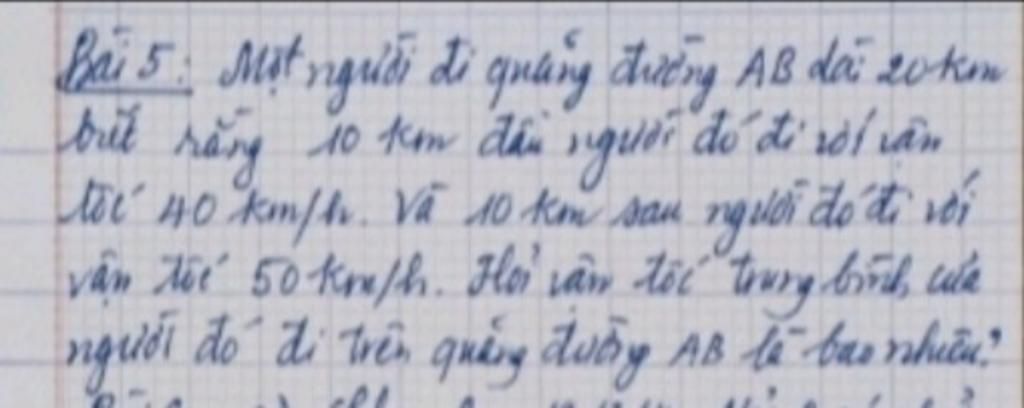 Bài 5: Một người đi quãng đường AB dài 20 km
biết rằng 10 km đầu người đó đi với vận
tốc 40 km/h. Và 10 km sau người đó đi với
vận tốc 50 km/h. Hỏi vận tốc trung bình của
người đó đi trên quãng đường AB là bao nhiêu?